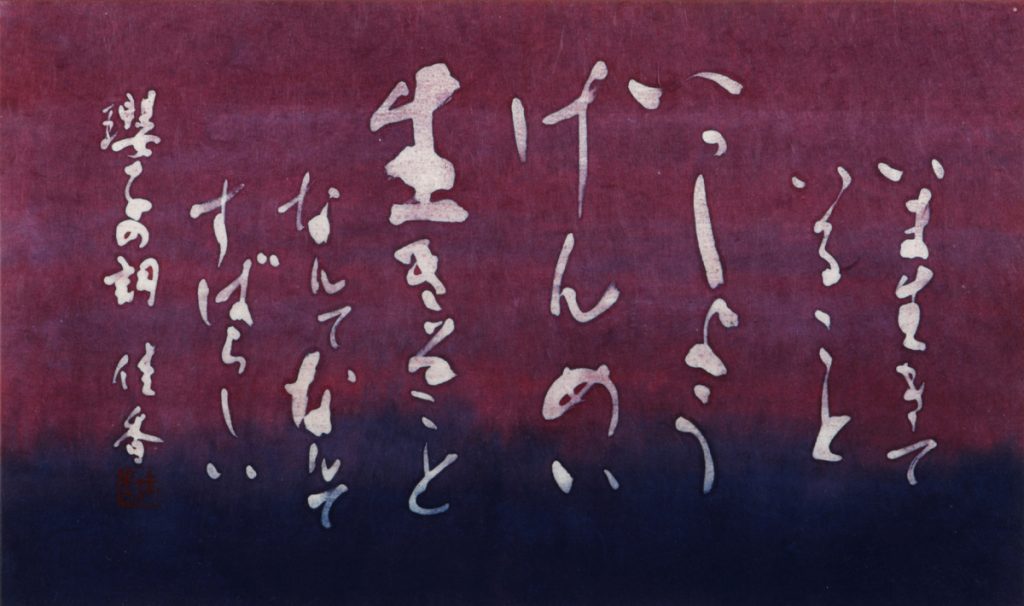 いま生きて
いること
いっしょう
けんめい
生きること
なんてなんて
すばらしい
の詞 佳香